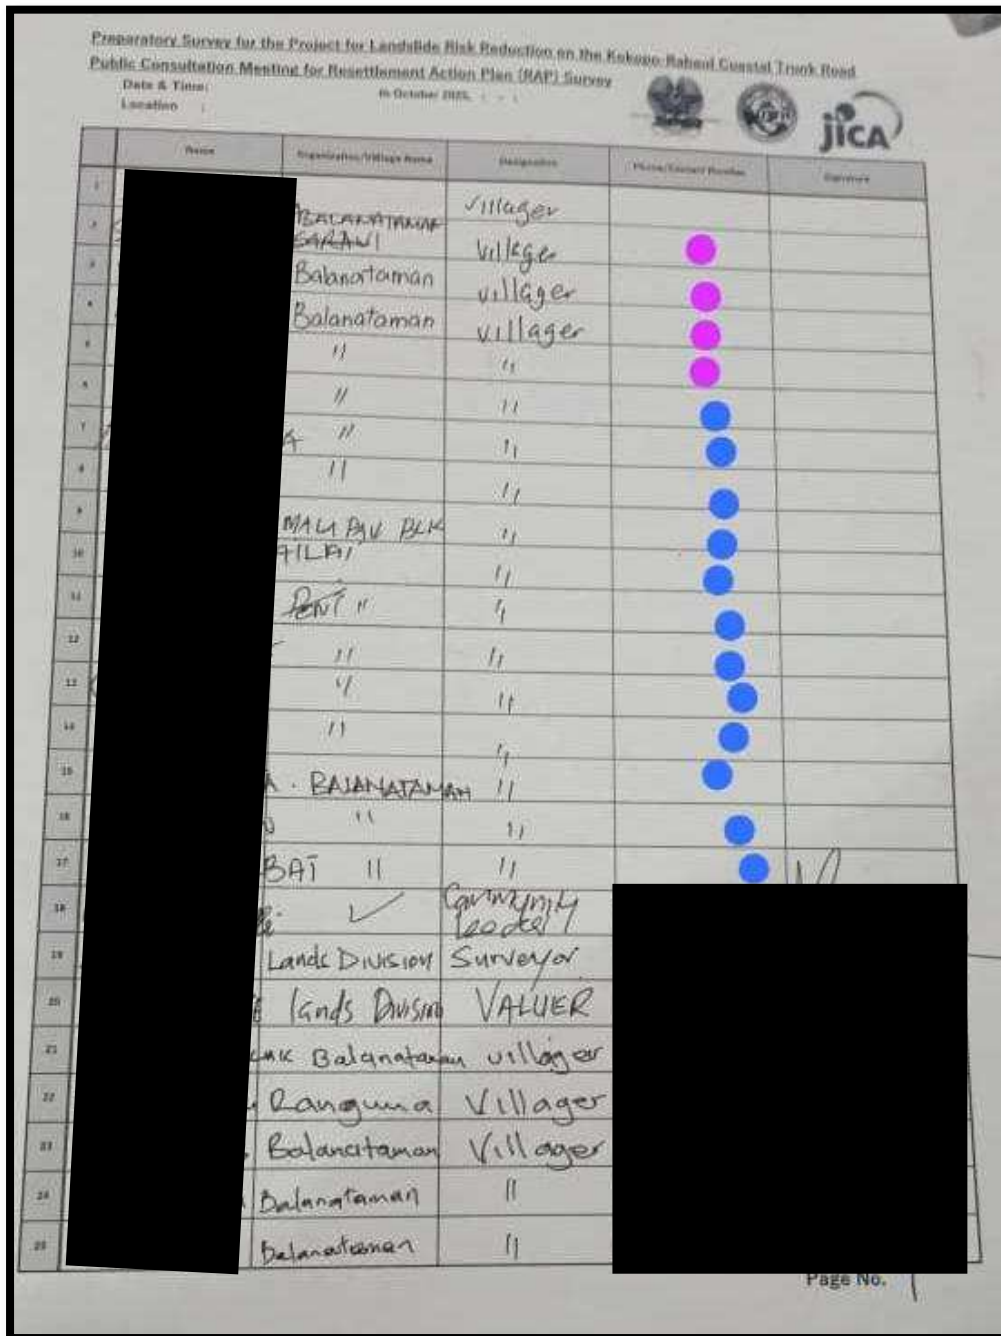 Preparatory Survey for the Project for Landslide Risk Reduction on the Kokopo-Rabaul Coastal Trunk Road
Public Consultation Meeting for Resettlement Action Plan (RAP) Survey
Date & Time: 16 October 2025,
Location :
jICA
Name Organization/Village Name Designation Phone/Contact Number Signature
1 Villager
2 BALANATAMAN SARAWI Village
3 Balanataman villager
4 Balanataman villager
5 " "
6 " "
7 A " "
8 " "
9 MALAPAU BLK "
10 "
11 "
12 " "
13 " "
14 " "
15 A. BALANATAMAN "
16 " "
17 BAI " "
18 ✓ Community leader
19 Lands Division Surveyor
20 lands Division VALUER
21 Balanataman villager
22 Ranguna Villager
23 Balanataman Villager
24 Balanataman "
25 Balanataman "
Page No. 1